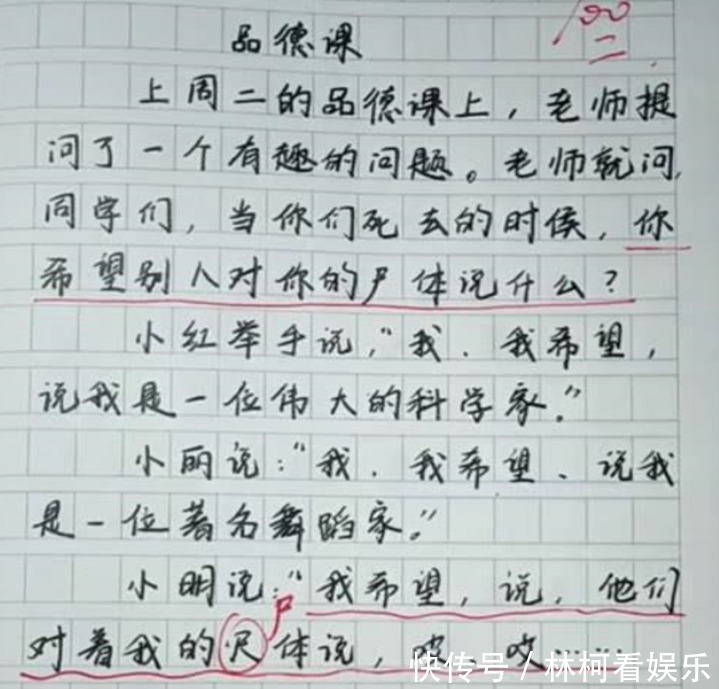 品德课
100
上周二的品德课上，老师提
问了一个有趣的问题。老师就问，
同学们，当你们死去的时候，你
希望别人对你的尸体说什么？
小红举手说，“我．我希望，
说我是一位伟大的科学家。”
小丽说：“我．我希望、说我
是一位著名舞蹈家。”
小明说：“我希望，说，他们
尸
对着我的尺体说，
快传号／林柯看娱乐